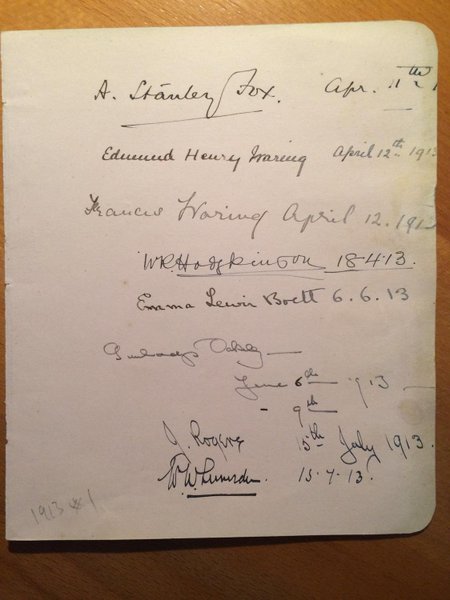 A. Stanley Fox. Apr. 11th
Edmund Henry Waring April 12th 1913
Francis Waring April 12. 1913
W.R. Hodgkinson 18.4.13.
Emma Lewin Boett 6.6.13
June 6th 1913 —
- 9th
J. Rogers 15th July 1913.
W.W. Lumsden. 15.7.13.
1913